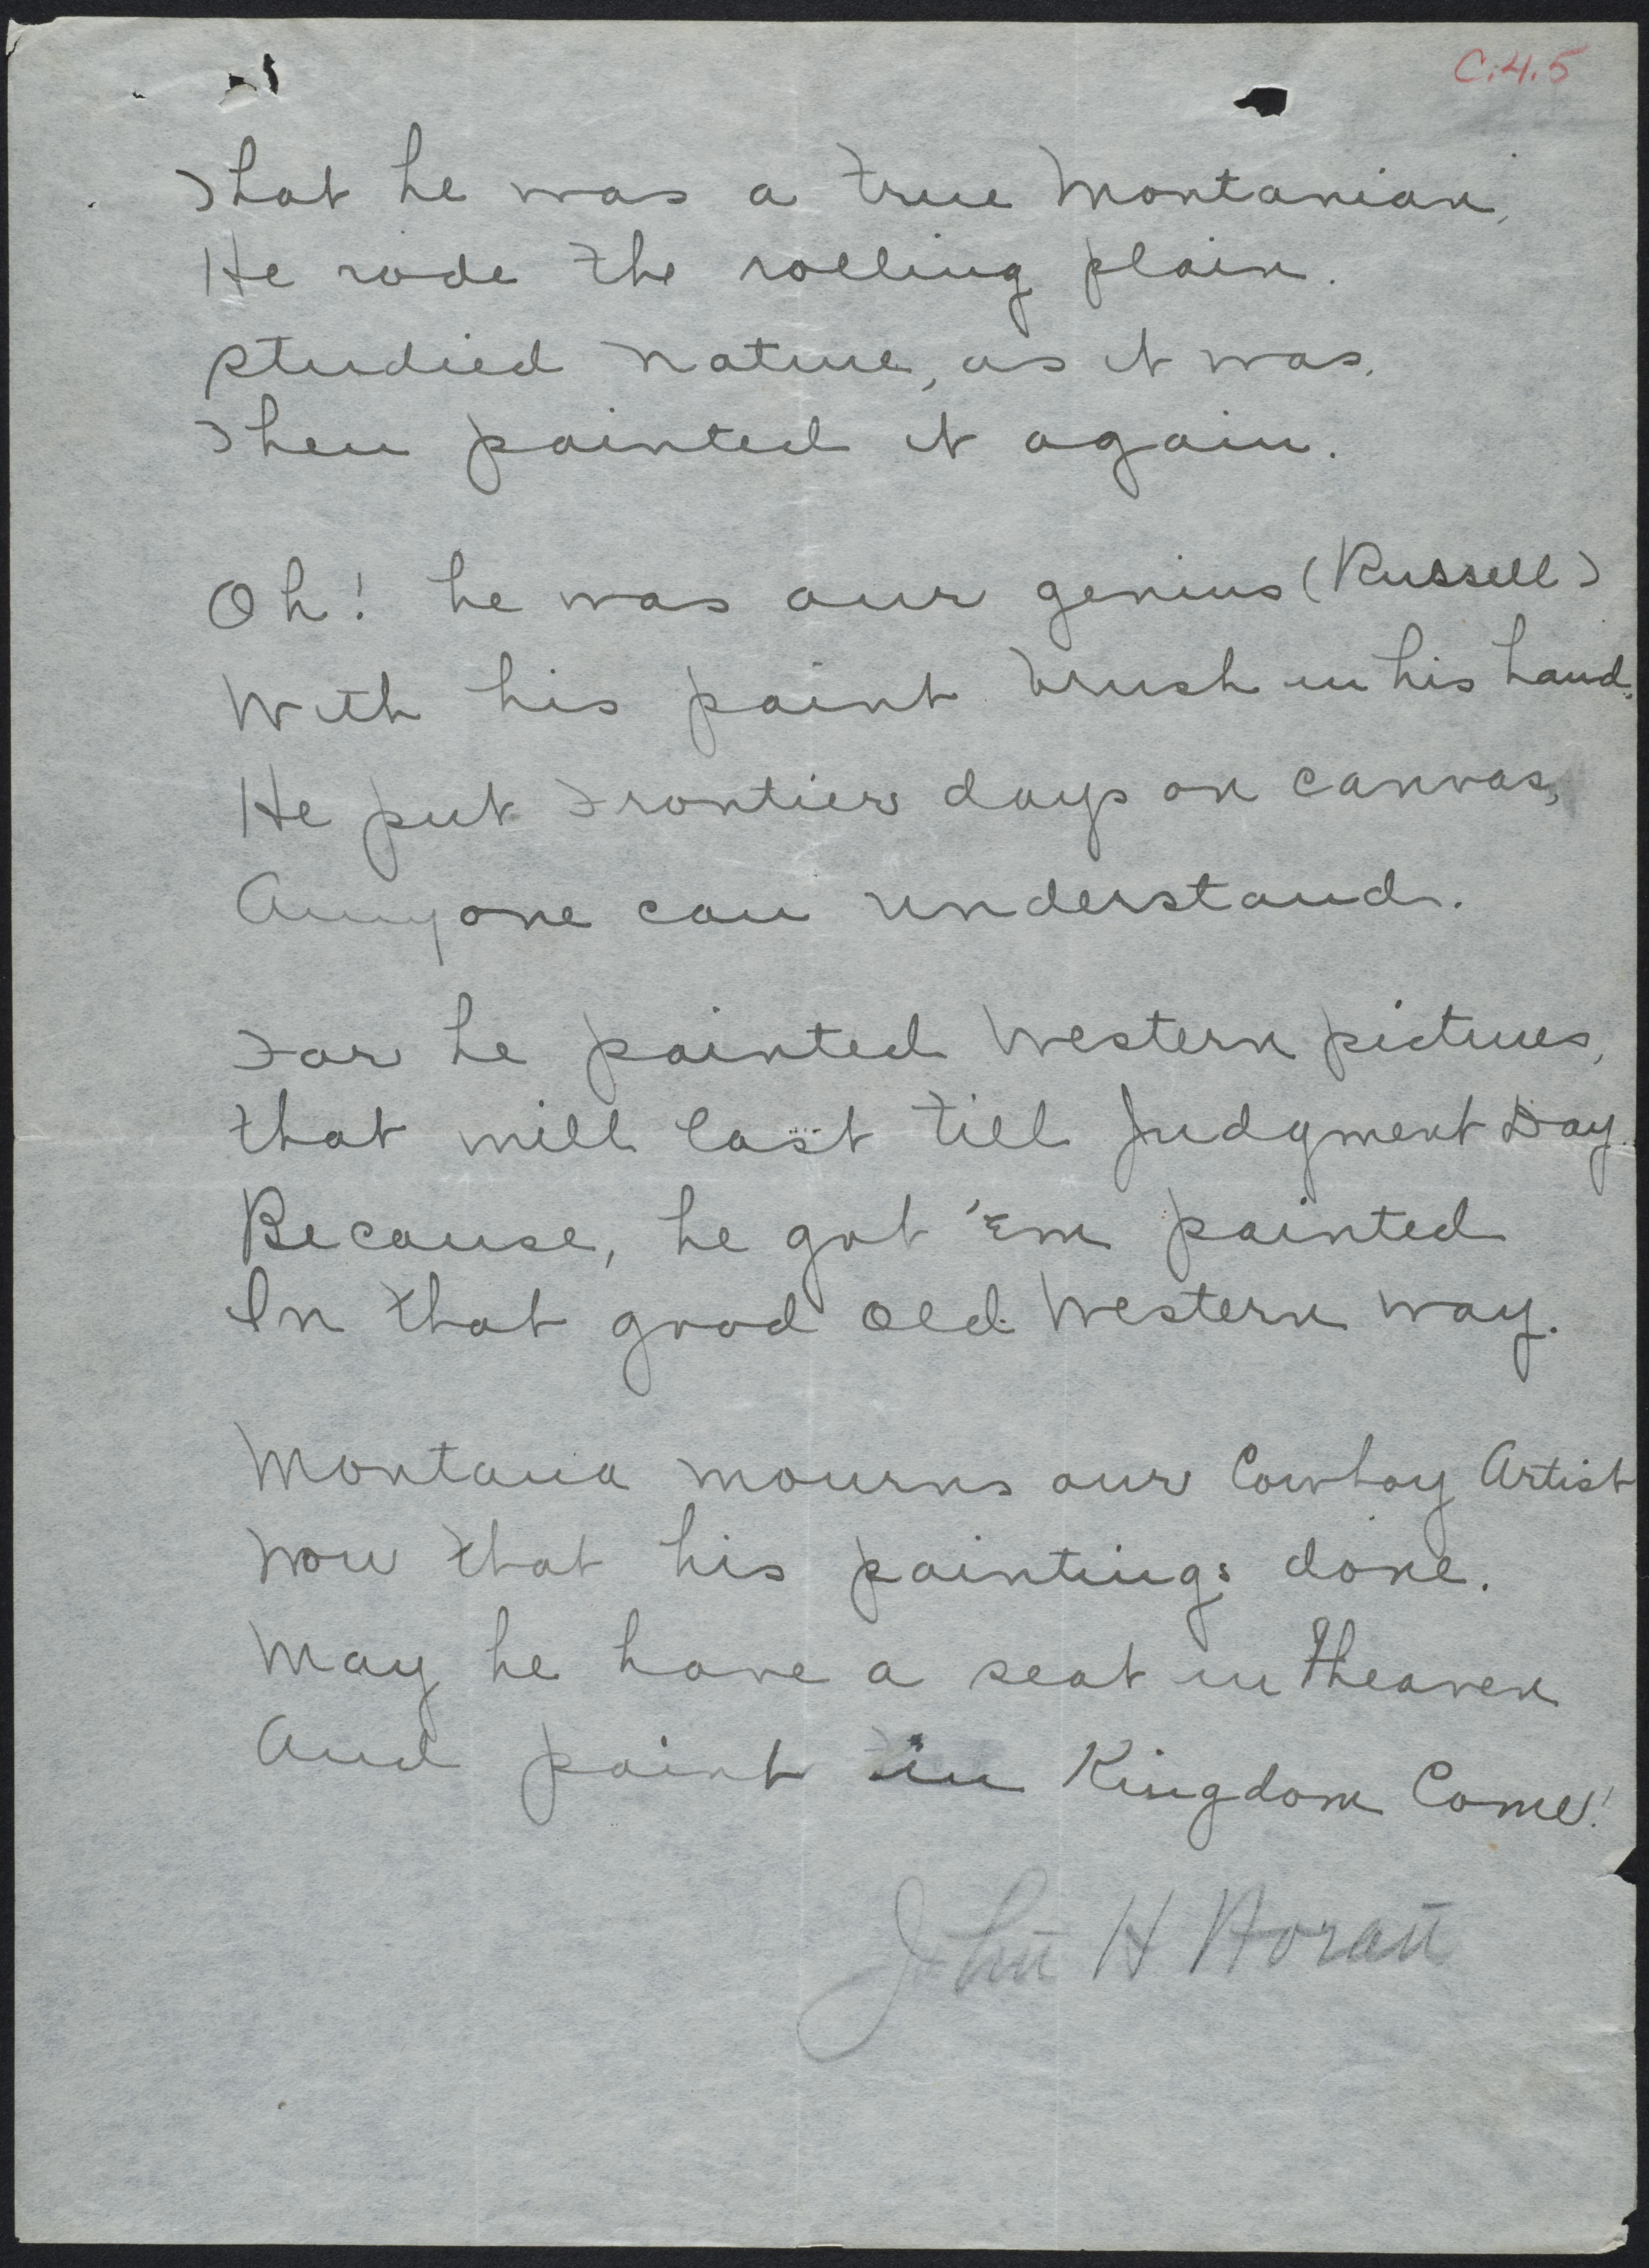 C.4.5
That he was a true Montanian,
He rode the rolling plain.
Studied nature, as it was,
Then painted it again.
Oh! he was our genius (Russell)
With his paint brush in his hand.
He put Frontier days on canvas,
Anyone can understand.
For he painted Western pictures,
that will last till Judgment Day.
Because, he got 'Em painted
In that good old Western way.
Montana mourns our Cowboy Artist
Now that his painting's done.
May he have a seat in Heaven
And paint in Kingdom Come!
John H Horan